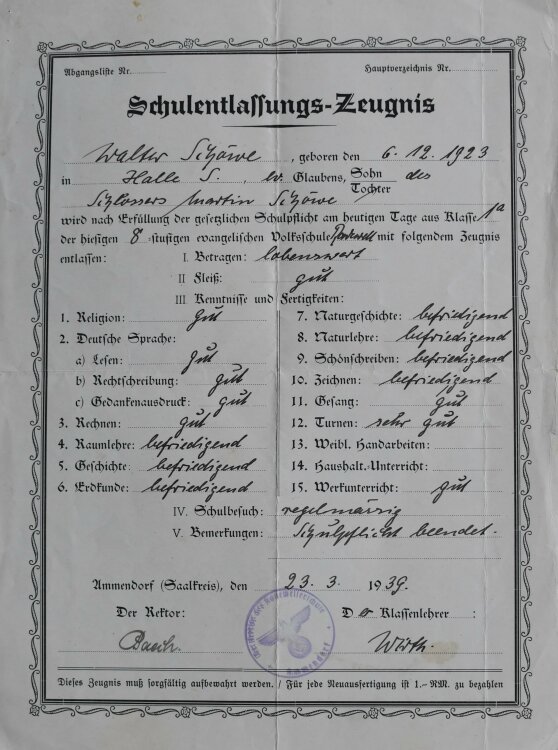 Abgangsliste Nr. Hauptverzeichnis Nr.
Schulentlassungs-Zeugnis
Walter Schöwe, geboren den 6. 12. 1923
in Halle S., ev. Glaubens, Sohn des
Tochter
Schlossers Martin Schöwe
wird nach Erfüllung der gesetzlichen Schulpflicht am heutigen Tage aus Klasse 1a
der hiesigen 8-stufigen evangelischen Volksschule mit folgendem Zeugnis
entlassen: I. Betragen: lobenswert
II Fleiß: gut
III Kenntnisse und Fertigkeiten:
1. Religion: gut
2. Deutsche Sprache:
a) Lesen: gut
b) Rechtschreibung: gut
c) Gedankenausdruck: gut
3. Rechnen: gut
4. Raumlehre: befriedigend
5. Geschichte: befriedigend
6. Erdkunde: befriedigend
7. Naturgeschichte: befriedigend
8. Naturlehre: befriedigend
9. Schönschreiben: befriedigend
10. Zeichnen: befriedigend
11. Gesang: gut
12. Turnen: sehr gut
13. Weibl. Handarbeiten:
14. Haushalt.-Unterricht:
15. Werkunterricht: gut
IV. Schulbesuch: regelmässig
V. Bemerkungen: Schulpflicht beendet.
Ammendorf (Saalkreis), den 23. 3. 1939.
Der Rektor: Der Klassenlehrer:
Wirth.
Ammendorf
Dieses Zeugnis muß sorgfältig aufbewahrt werden. / Für jede Neuausfertigung ist 1.- RM. zu bezahlen